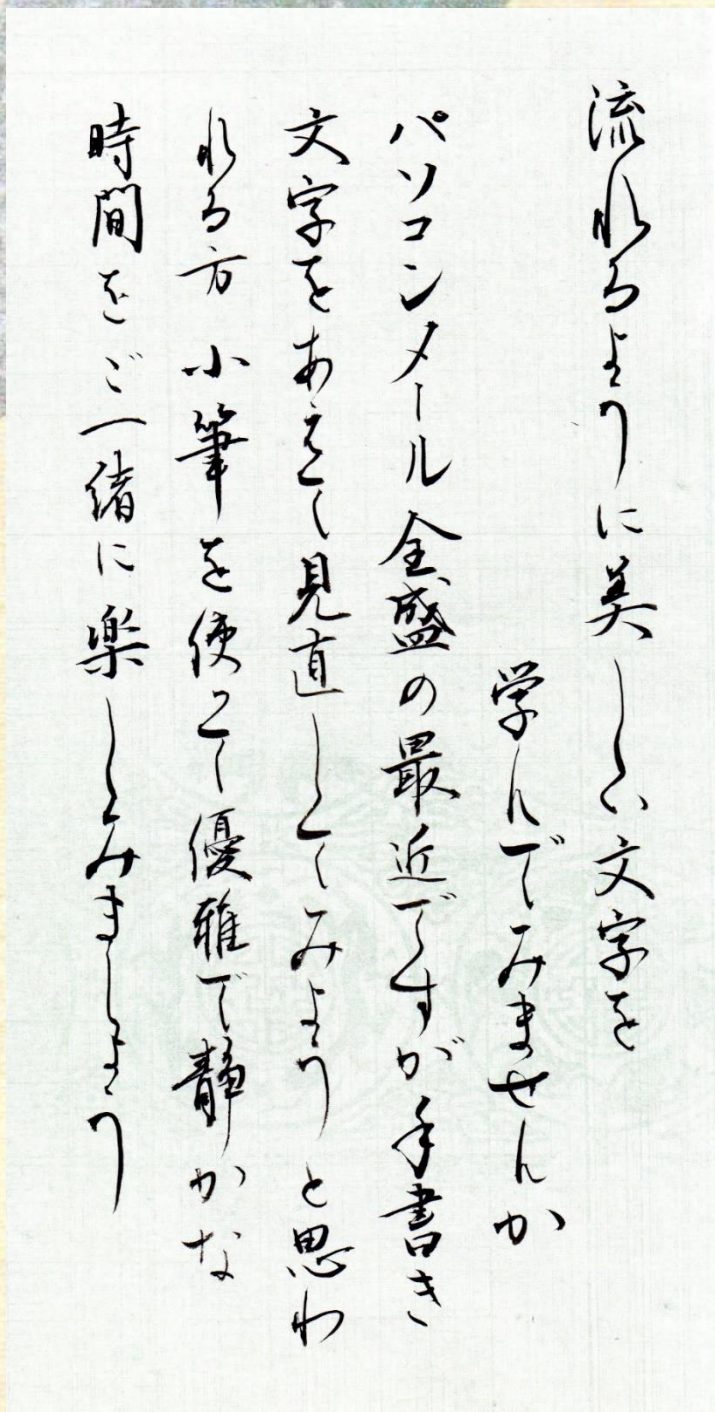 流れるように美しい文字を
学んでみませんか
パソコンメール全盛の最近ですが手書き
文字をあえて見直してみようと思わ
れる方 小筆を使って優雅で静かな
時間をご一緒に楽しみましょう